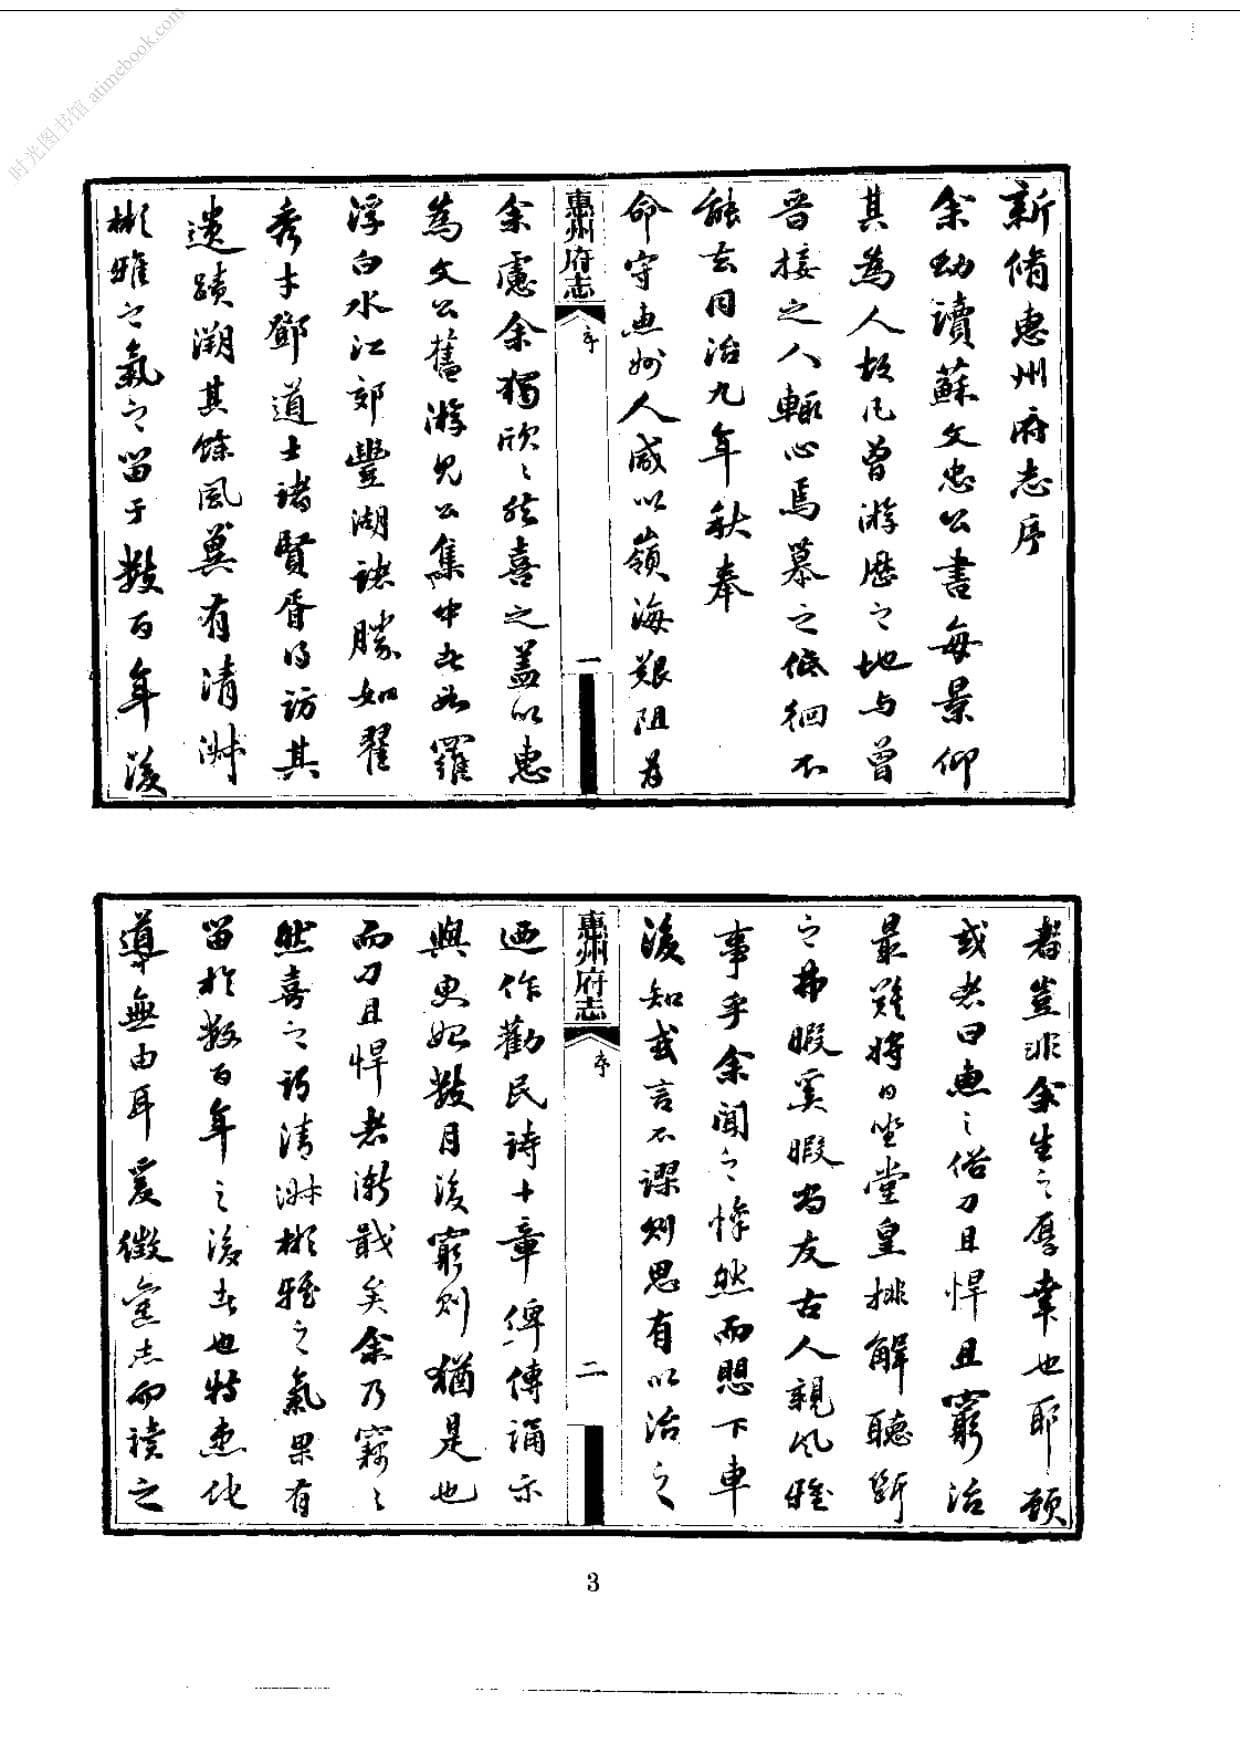 时光图书馆 atimebook.com
新脩惠州府志序
余幼讀蘇文忠公書每景仰
其為人故凡曾游歷之地与曾
晉接之人輒心焉慕之低徊不
能去同治九年秋奉
命守惠州人咸以嶺海艱阻為
惠州府志
序
一
余慮余獨欣〻然喜之蓋以惠
為文公舊游見公集中者如羅
浮白水江郊豐湖諸勝如翟
秀才鄧道士諸賢胥得訪其
遺蹟溯其餘風冀有清淋
彬雅之氣之留于數百年後
者豈非余生之厚幸也耶顧
或者曰惠之俗刀且悍且窮治
最難將日坐堂皇排解聽斷
之弗暇奚暇尚友古人親風雅
事乎余聞之悚然而思下車
後知或言不謬則思有以治之
惠州府志
序
二
迺作勸民詩十章俾傳誦示
與更始數月後窮則猶是也
而刀且悍者漸戢矣余乃竊〻
然喜之謂清淋彬雅之氣果有
留於數百年之後者也特患化
導無由耳爰徵舊志而讀之
3